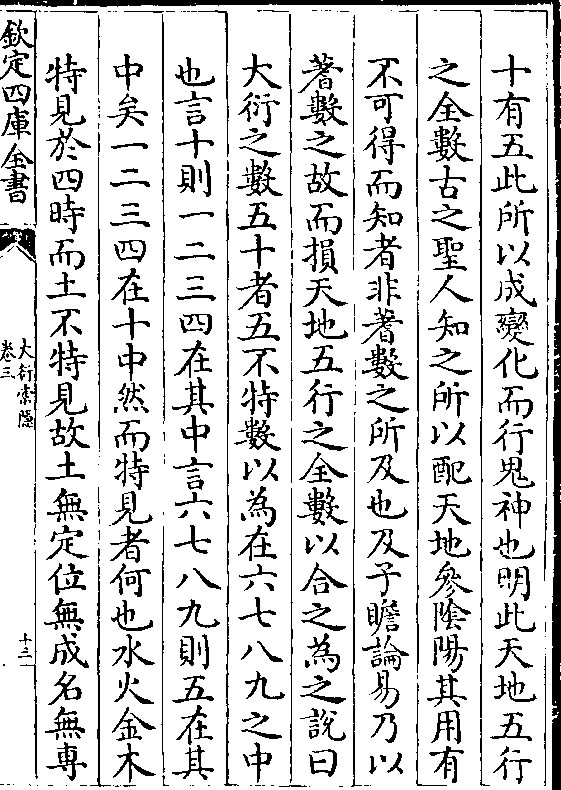 十有五此所以成變化而行鬼神也明此天地五行
之全數古之聖人知之所以配天地參陰陽其用有
不可得而知者非蓍數之所及也及子瞻論易乃以
蓍數之故而損天地五行之全數以合之為之說曰
大衍之數五十者五不特數以為在六七八九之中
也言十則一二三四在其中言六七八九則五在其
中矣一二三四在十中然而特見者何也水火金木
特見於四時而土不特見故土無定位無成名無專
欽定四庫全書
大衍索隱
卷三
十三